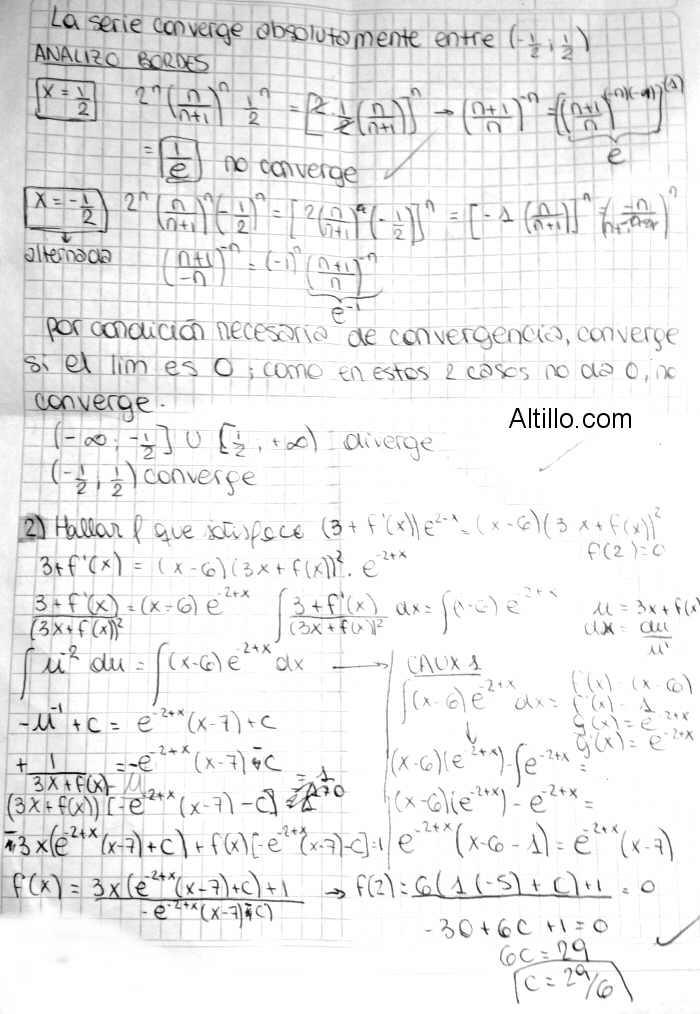 La serie converge absolutamente entre (-1/2 ; 1/2)
ANALIZO BORDES
x = 1/2   2^n (n/(n+1))^n 1/2^n = [2 · 1/2 (n/(n+1))]^n → ((n+1)/n)^-n = [((n+1)/n)^(-n)(-1)]^(-1)
e
= 1/e no converge
x = -1/2   2^n (n/(n+1))^n (-1/2)^n = [2 (n/(n+1)) (-1/2)]^n = [-1 (n/(n+1))]^n =
alternada   ((n+1)/-n)^-n = (-1)^n ((n+1)/n)^-n
e^-1
por condición necesaria de convergencia, converge
si el lim es 0 ; como en estos 2 casos no da 0, no
converge.
Altillo.com
(-∞ ; -1/2] ∪ [1/2 , +∞) diverge
(-1/2 , 1/2) converge
2) Hallar f que satisface (3 + f'(x)) e^2-x = (x-6)(3x + f(x))^2
f(2) = 0
3 + f'(x) = (x-6)(3x + f(x))^2 . e^-2+x
(3 + f'(x))/(3x + f(x))^2 = (x-6) e^-2+x   ∫ (3 + f'(x))/(3x + f(x))^2 dx = ∫ (x-6) e^-2+x
u = 3x + f(x)
dx = du/u'
∫ u^-2 du = ∫ (x-6) e^-2+x dx →
-u^-1 + c = e^-2+x (x-7) + c
+ 1/(3x + f(x)) = -e^-2+x (x-7) - c
(3x + f(x)) [-e^-2+x (x-7) - c] = 1
-3x (e^-2+x (x-7) + c) + f(x) [-e^-2+x (x-7) - c] = 1
CAUX 1
∫ (x-6) e^-2+x dx =
f(x) = (x-6)
f'(x) = 1
g(x) = e^-2+x
g'(x) = e^-2+x
(x-6)(e^-2+x) - ∫ e^-2+x =
(x-6)(e^-2+x) - e^-2+x =
e^-2+x (x-6-1) = e^-2+x (x-7)
f(x) = (3x (e^-2+x (x-7) + c) + 1)/(-e^-2+x (x-7) - c) → f(2) = 6 (1 (-5) + c) + 1 = 0
-30 + 6c + 1 = 0
6c = 29
c = 29/6